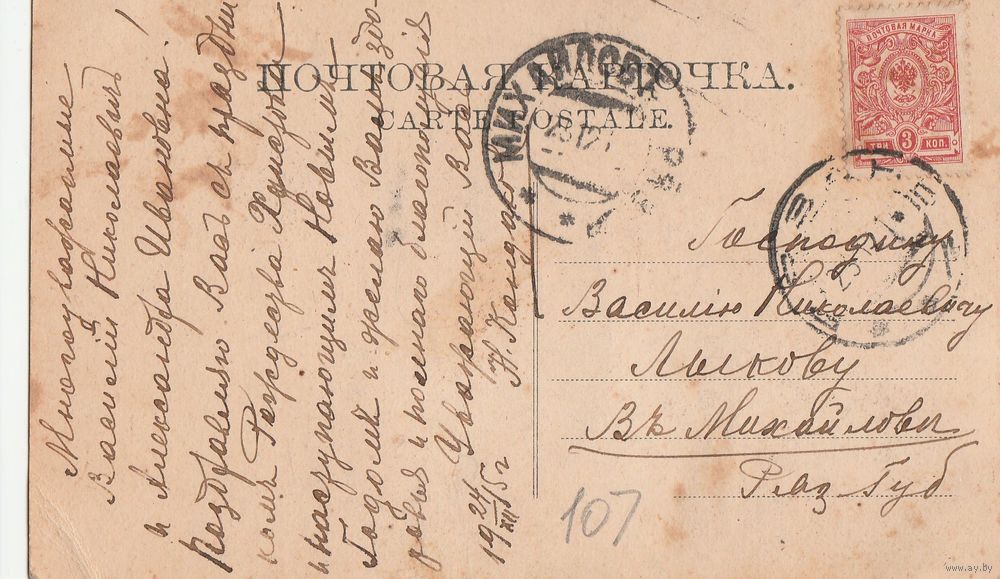 ПОЧТОВАЯ КАРТОЧКА.
CARTE POSTALE.
ПОЧТОВАЯ МАРКА
ТРИ 3 КОП.
МИХАЙЛОВ
Многоуважаемые
Василій Николаевичъ
и Александра Ивановна!
Поздравляю Васъ съ праздни-
комъ Рождества Христова
и наступающимъ Новымъ
Годомъ и желаю Вамъ здо-
ровья и полнаго благополучія
Уважающій Васъ
19 24/XII 15 г
Господину
Василію Николаевичу
Лыкову
Въ Михайловъ
Ряз Губ
107
www.ay.by